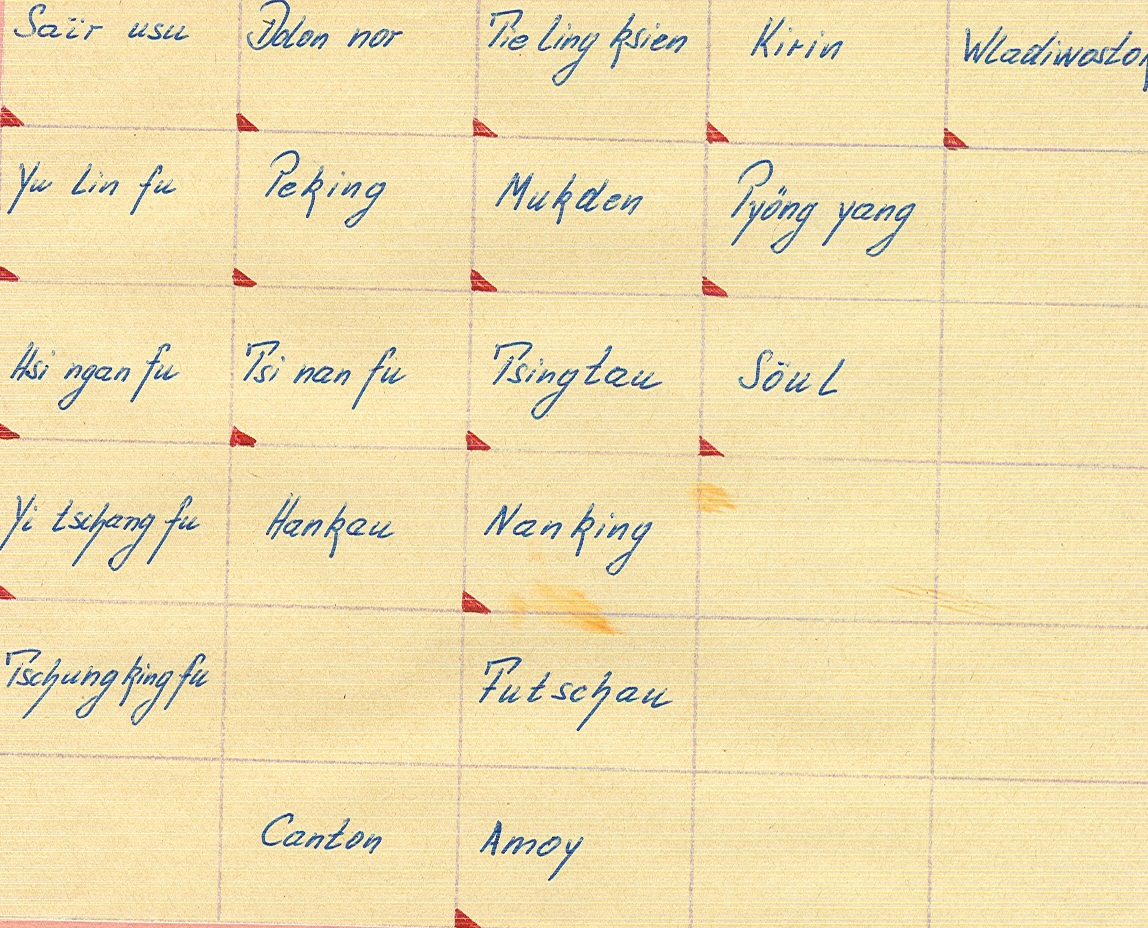 Saïr usu Dolon nor Tie ling hsien Kirin Wladiwostok
Yu lin fu Peking Mukden Pyöng yang
Hsi ngan fu Tsi nan fu Tsingtau Söul
Yi tschang fu Hankau Nanking
Tschungking fu Futschau
Canton Amoy